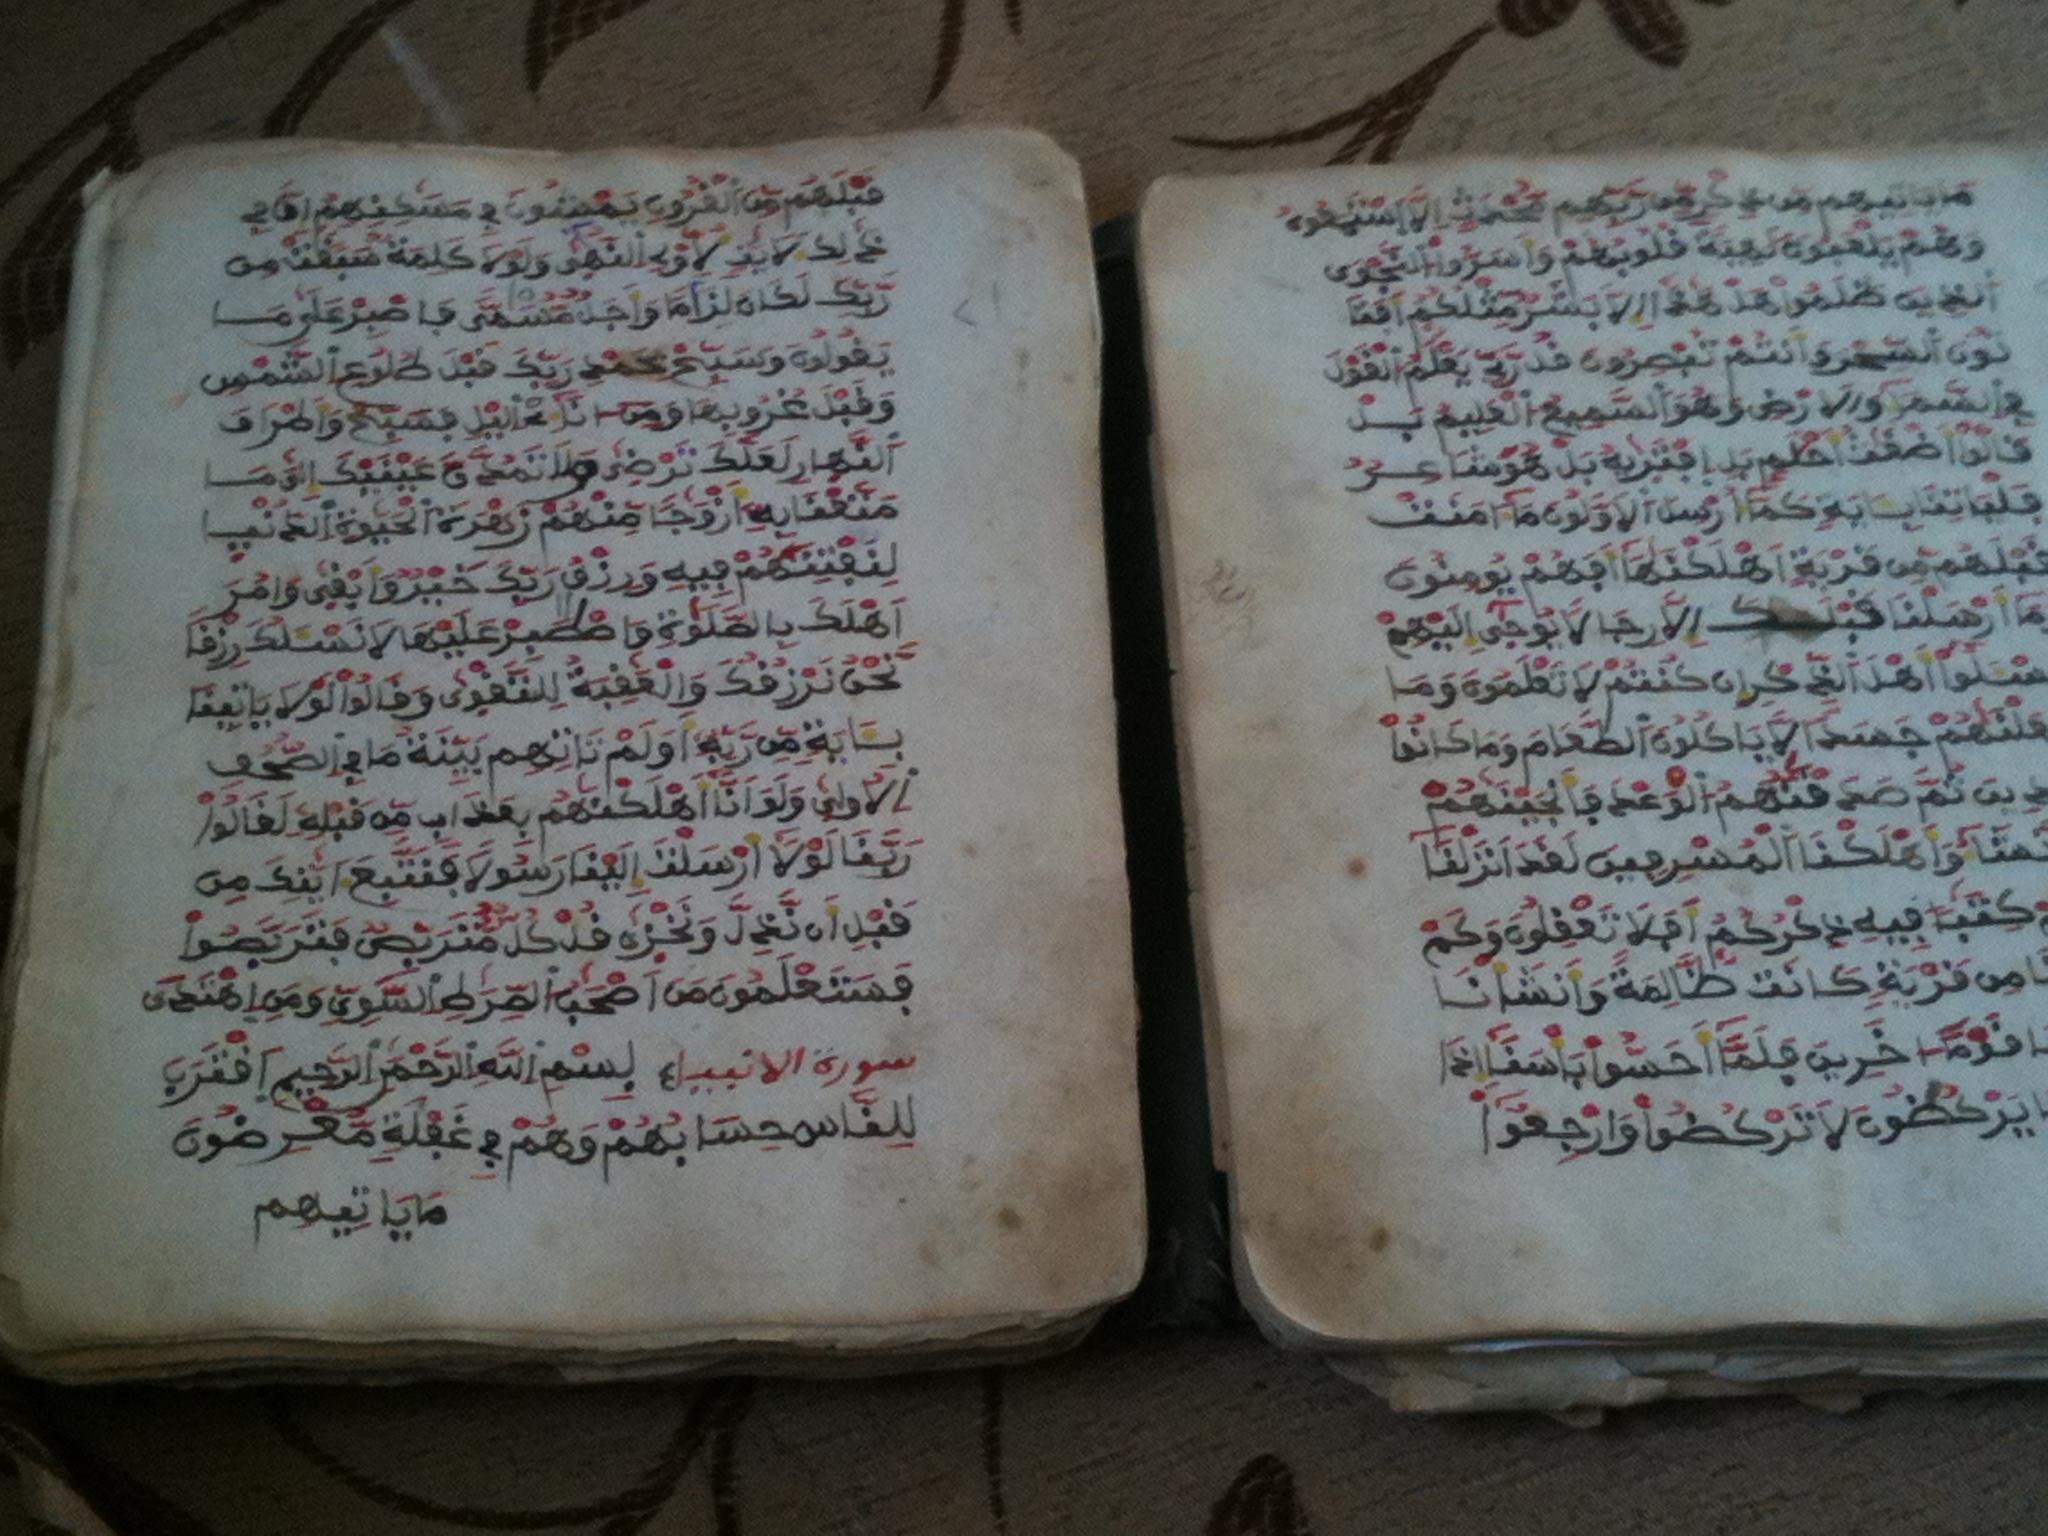 قبلهم من القرون يمشون في مسكنهم ان في
ذلك لايت لاولي النهى ولولا كلمة سبقت من
ربك لكان لزاما واجل مسمى فاصبر على ما
يقولون وسبح بحمد ربك قبل طلوع الشمس
وقبل غروبها ومن اناءي اليل فسبح واطراف
النهار لعلك ترضى ولا تمدن عينيك الى ما
متعنا به ازوجا منهم زهرة الحيوة الدنيا
لنفتنهم فيه ورزق ربك خير وابقى وامر
اهلك بالصلوة واصطبر عليها لا نسلك رزقا
نحن نرزقك والعقبة للتقوى وقالوا لولا ياتينا
باية من ربه اولم تاتهم بينة ما في الصحف
الاولى ولو انا اهلكنهم بعذاب من قبله لقالوا
ربنا لولا ارسلت الينا رسولا فنتبع ايتك من
قبل ان نذل ونخزى قل كل متربص فتربصوا
فستعلمون من اصحب الصرط السوي ومن اهتدى
سورة الانبياء بسم الله الرحمن الرحيم اقترب
للناس حسابهم وهم في غفلة معرضون
ما ياتيهم
ما ياتيهم من ذكر من ربهم محدث الا استمعوه
وهم يلعبون لهية قلوبهم واسروا النجوى
الذين ظلموا هل هذا الا بشر مثلكم افتا
تون السحر وانتم تبصرون قل ربي يعلم القول
في السماء والارض وهو السميع العليم بل
قالوا اضغث احلم بل افتريه بل هو شاعر
فلياتنا باية كما ارسل الاولون ما امنت
قبلهم من قرية اهلكنها افهم يومنون
وما ارسلنا قبلك الا رجالا يوحى اليهم
فسلوا اهل الذكر ان كنتم لا تعلمون وما
جعلنهم جسدا لا ياكلون الطعام وما كانوا
خلدين ثم صدقنهم الوعد فانجينهم
نشاء واهلكنا المسرفين لقد انزلنا
كتبا فيه ذكركم افلا تعقلون وكم
من قرية كانت ظالمة وانشانا
قوما اخرين فلما احسوا باسنا اذا
يركضون لا تركضوا وارجعوا